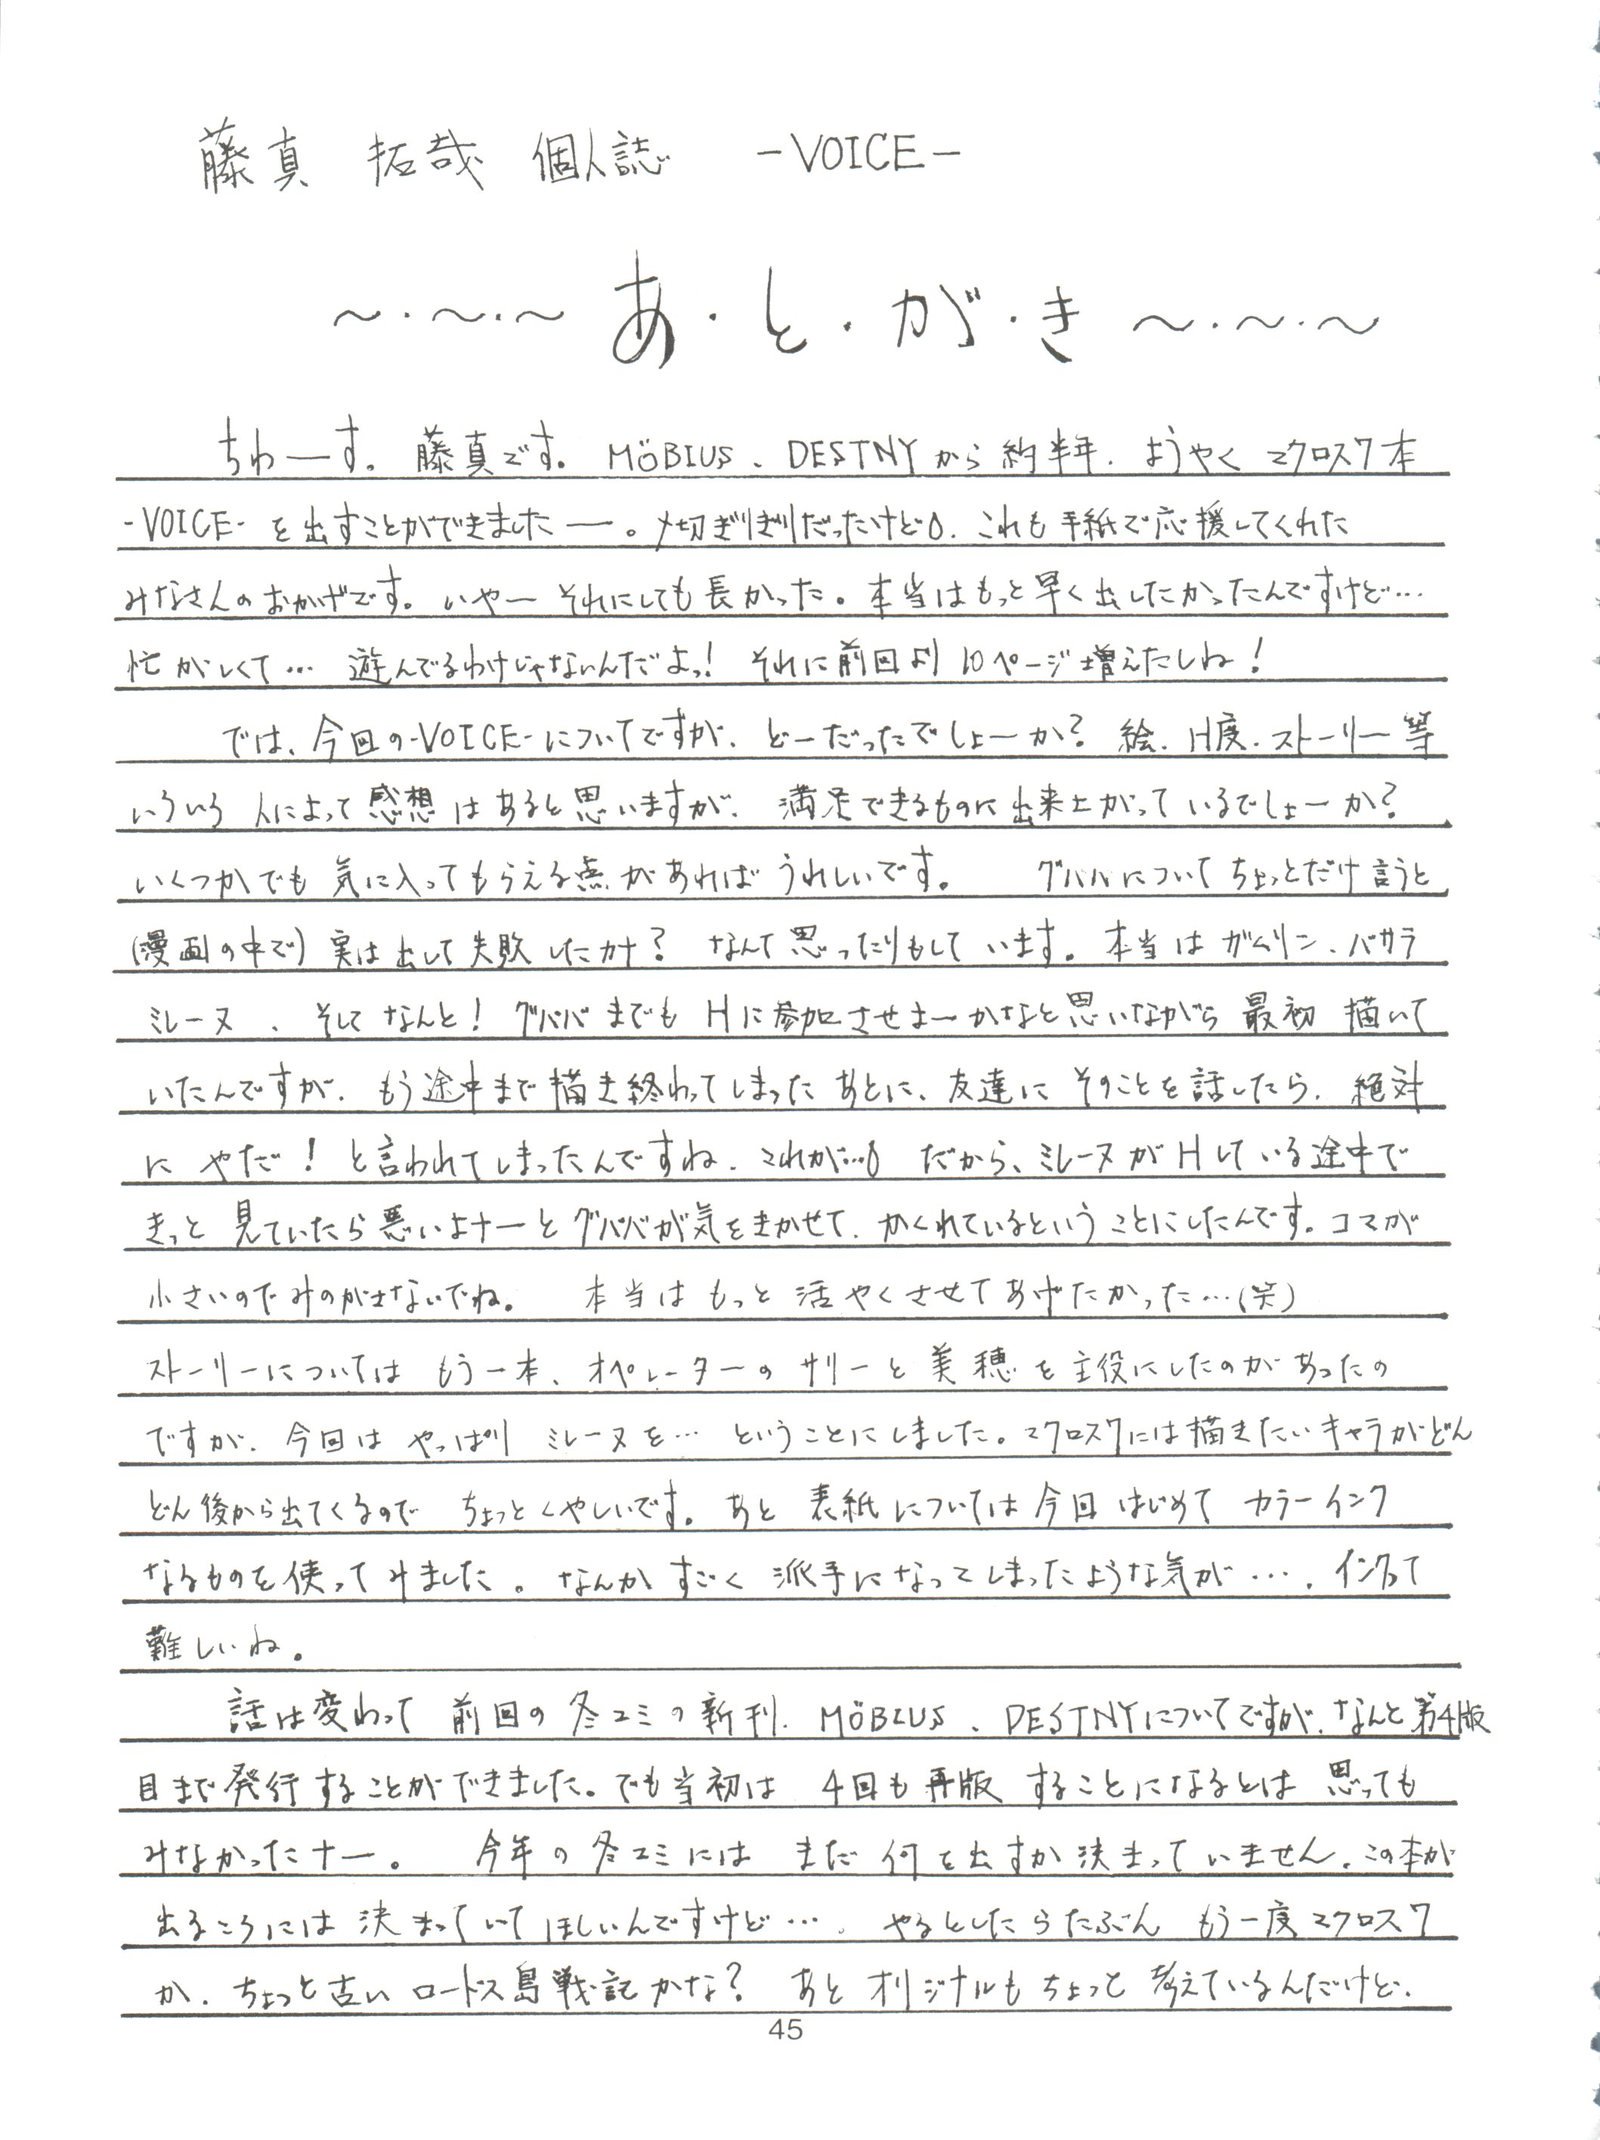 藤真 拓哉 個人誌 -VOICE-
～・～・～ あ・と・が・き ～・～・～
ちわーす。藤真です。MÖBIUS、DESTNYから約半年、ようやくマクロス7本
-VOICE- を出すことができましたー。〆切ぎりぎりだったけど。これも手紙で応援してくれた
みなさんのおかげです。いやー それにしても長かった。本当はもっと早く出したかったんですけど…
忙がしくて… 遊んでるわけじゃないんだよっ! それに前回より10ページ増えたしね!
では、今回の-VOICE-についてですが、どーだったでしょーか? 絵、H度、ストーリー等
いろいろ 人によって感想はあると思いますが、満足できるものに出来上がっているでしょーか?
いくつかでも 気に入ってもらえる点があればうれしいです。 グババについてちょっとだけ言うと
(漫画の中で) 実は出して失敗したカナ? なんて思ったりもしています。本当はガムリン、バサラ
ミレーヌ、そしてなんと! グババまでも Hに参加させまーかなと思いながら最初 描いて
いたんですが、もう途中まで描き終わってしまったあとに、友達に そのことを話したら、絶対
に やだ! と言われてしまったんですね、これが… だから、ミレーヌがHしている途中で
きっと 見ていたら悪いよナーとグババが気をきかせて、かくれているということにしたんです。コマが
小さいのでみのがさないでね。 本当はもっと活やくさせてあげたかった…(笑)
ストーリーについては もう一本、オペレーターの サリーと美穂を主役にしたのがあったの
ですが、今回は やっぱり ミレーヌを… ということにしました。マクロス7には描きたいキャラがどん
どん後から出てくるので ちょっとくやしいです。あと 表紙については今回はじめて カラーインク
なるものを使ってみました。なんか すごく 派手になってしまったような気が…、インクって
難しいね。
話は変わって 前回の冬コミの新刊、MÖBIUS、DESTNYについてですが、なんと第4版
目まで発行することができました。でも当初は 4回も再版 することになるとは 思っても
みなかったナー。 今年の冬コミには まだ 何を出すか決まっていません。この本が
出るころには 決まっていて ほしいんですけど…、やるとしたらたぶん もう一度マクロス7
か、ちょっと古い ロードス島戦記かな? あと オリジナルもちょっと 考えているんだけど、
45